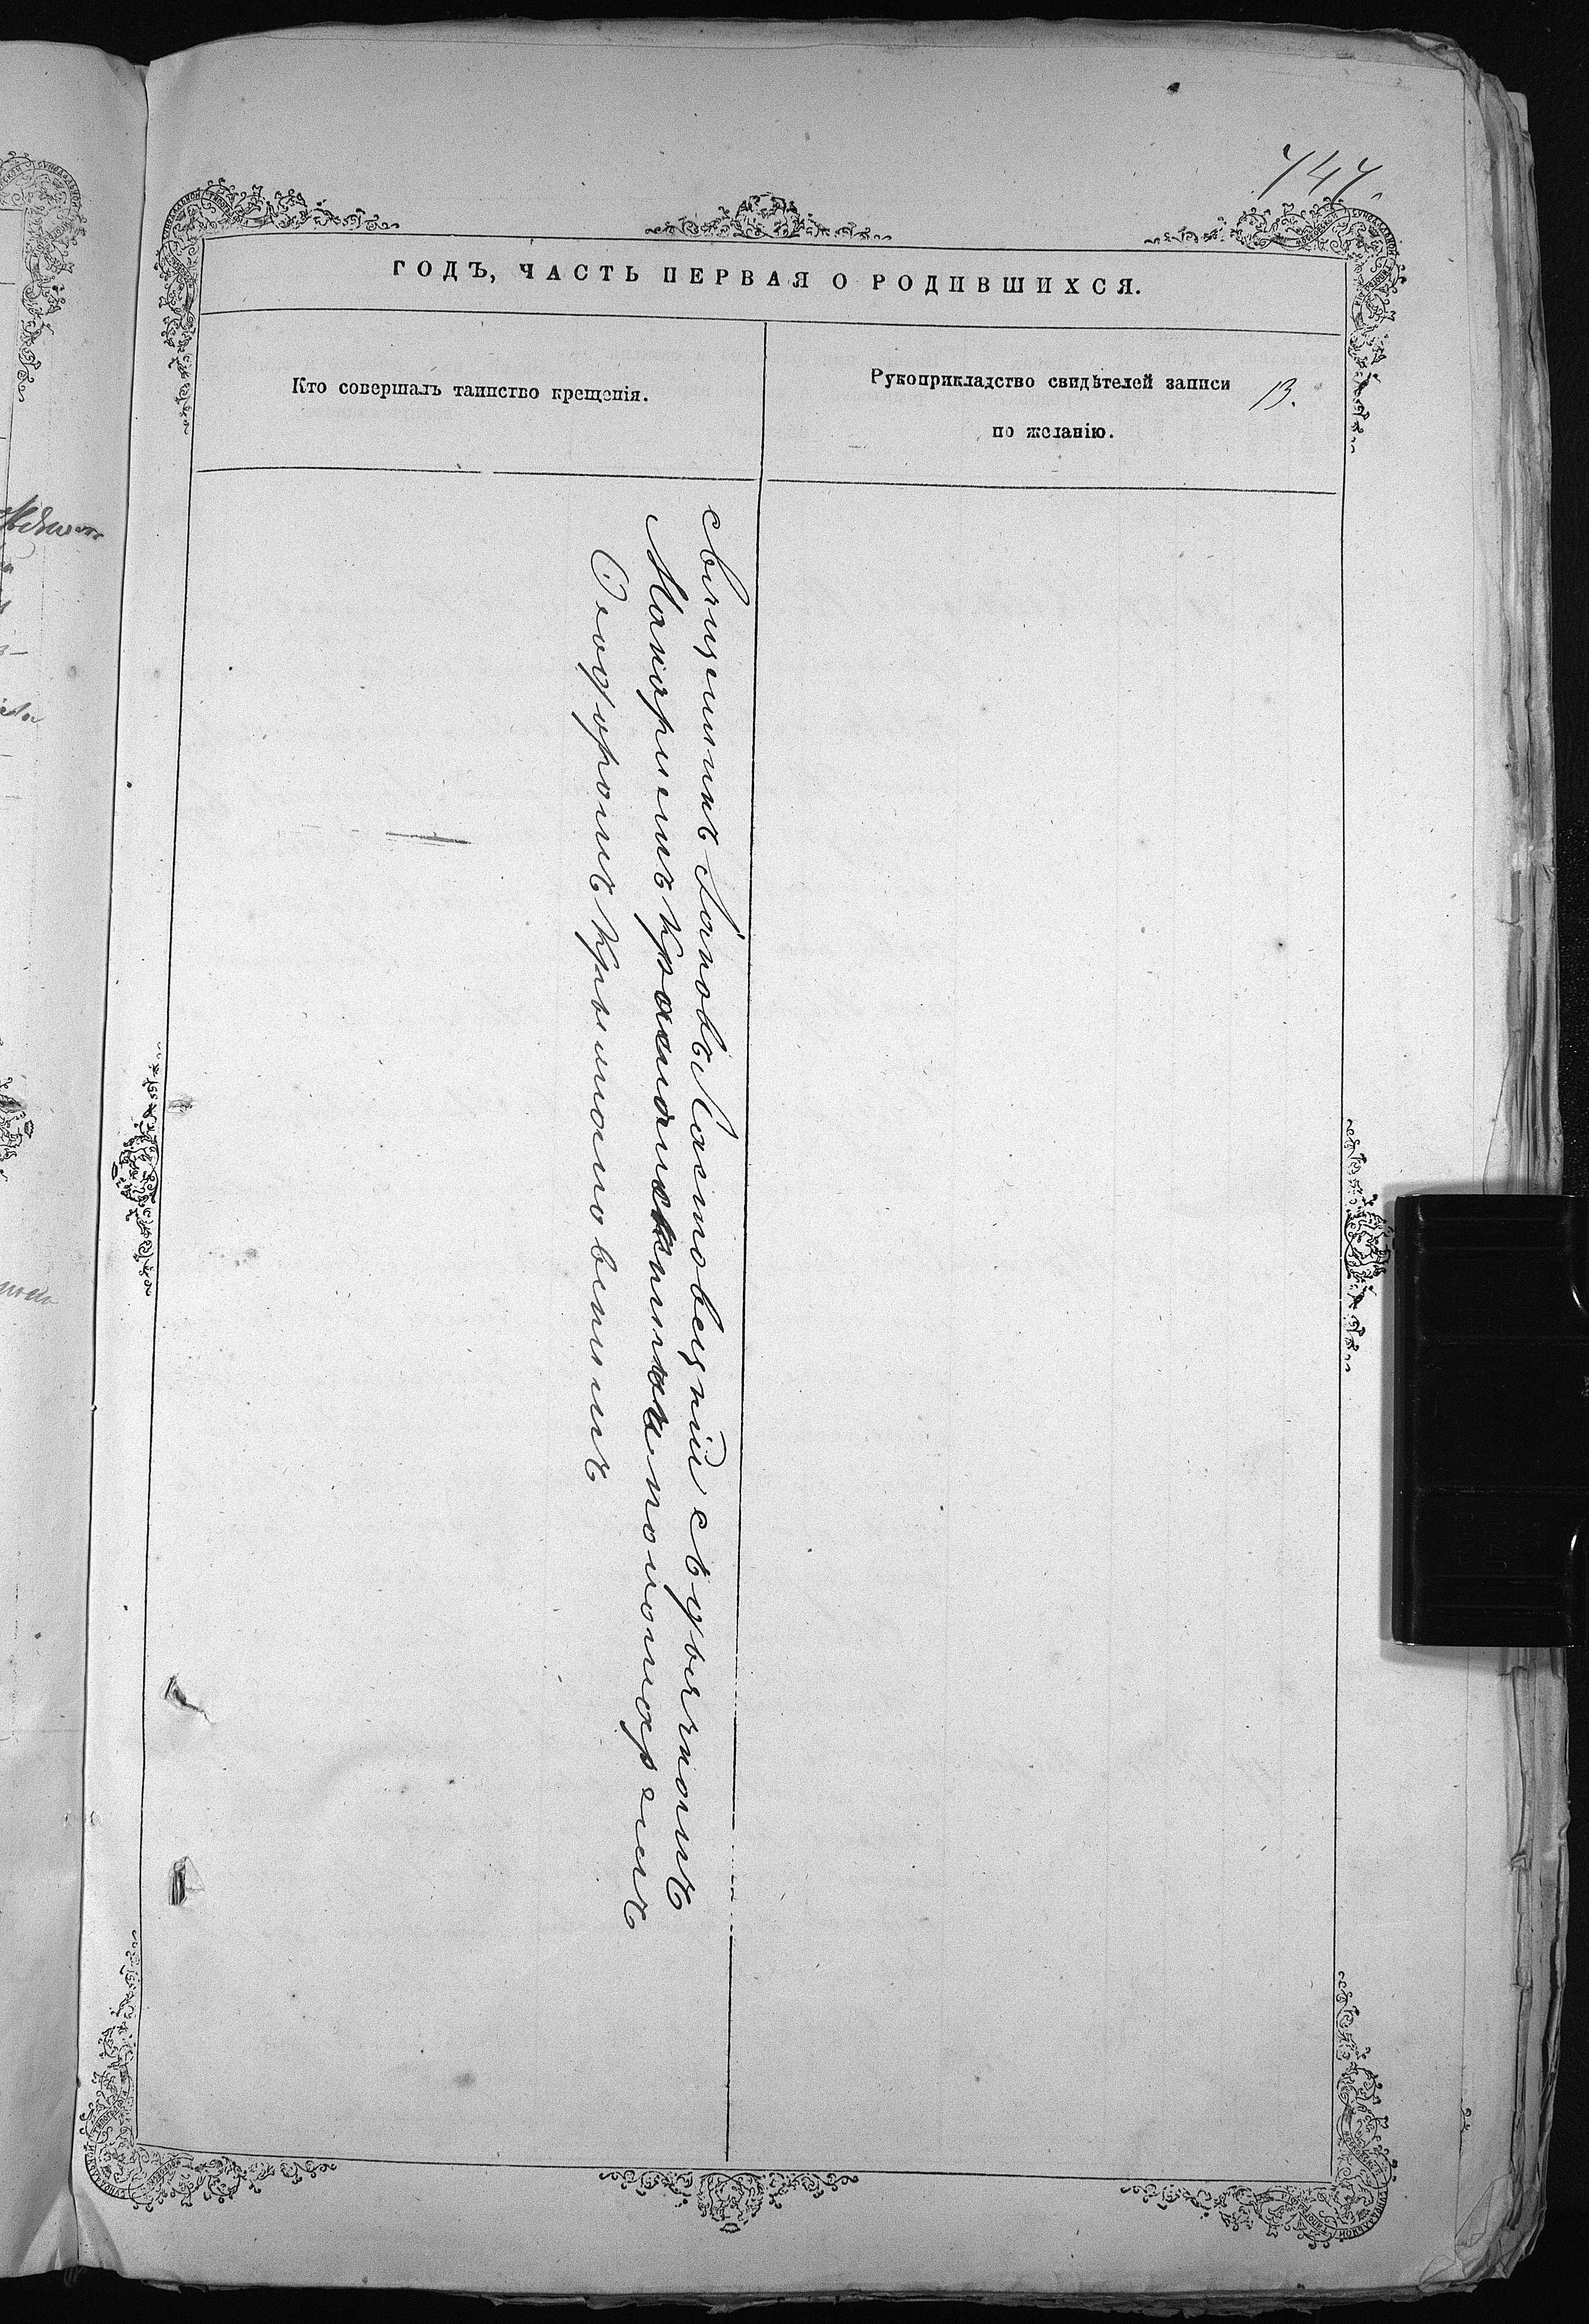 747.
ГОДЪ, ЧАСТЬ ПЕРВАЯ О РОДИВШИХСЯ.
Кто совершалъ таинство крещенія.
Рукоприкладство свидѣтелей записи
по желанію.
13.
священникъ Іаковъ Ластовецкій съ дьячкомъ
Макаріемъ и пономаремъ
Ѳеодоромъ